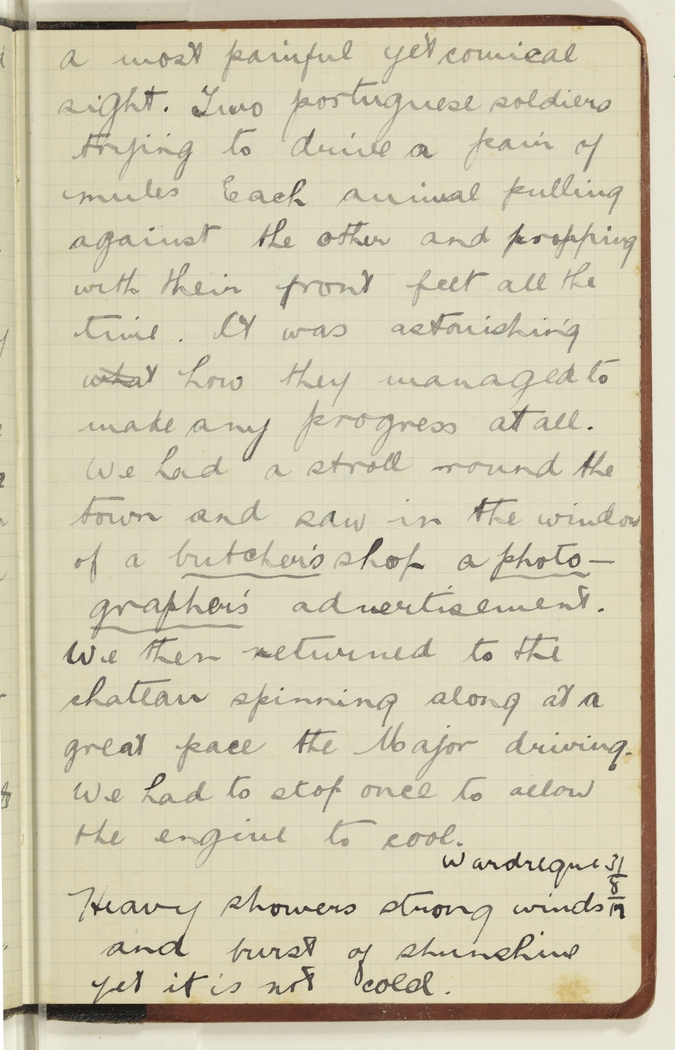 a most painful yet comical
sight. Two portuguese soldiers
trying to drive a pair of
mules Each animal pulling
against the other and propping
with their front feet all the
time. It was astonishing
what how they managed to
make any progress at all.
We had a stroll round the
town and saw in the window
of a butcher's shop a photo-
grapher's advertisement.
We then returned to the
chateau spinning along at a
great pace the Major driving.
We had to stop once to allow
the engine to cool.
Wardreque 31/8/17
Heavy showers strong winds
and burst of shunshine
yet it is not cold.